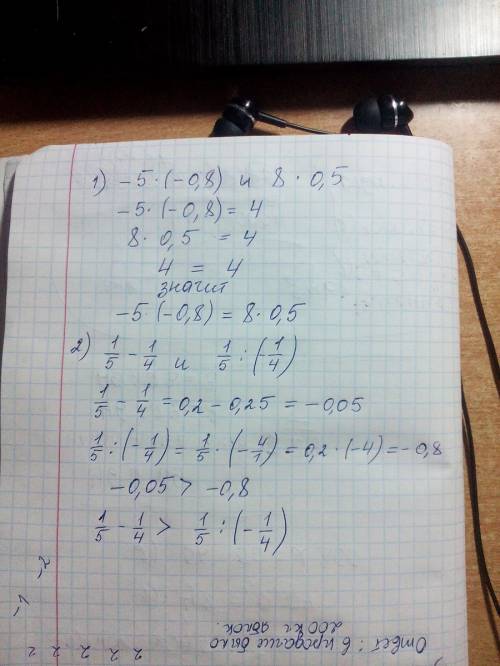 1) -5·(-0,8) и 8·0,5
-5·(-0,8) = 4
8·0,5 = 4
4 = 4
значит
-5·(-0,8) = 8·0,5
2) 1/5 - 1/4 и 1/5 : (-1/4)
1/5 - 1/4 = 0,2 - 0,25 = -0,05
1/5 : (-1/4) = 1/5 · (-4/1) = 0,2·(-4) = -0,8
-0,05 > -0,8
1/5 - 1/4 > 1/5 : (-1/4)
Ответ: в продаже было
200 кг яблок.